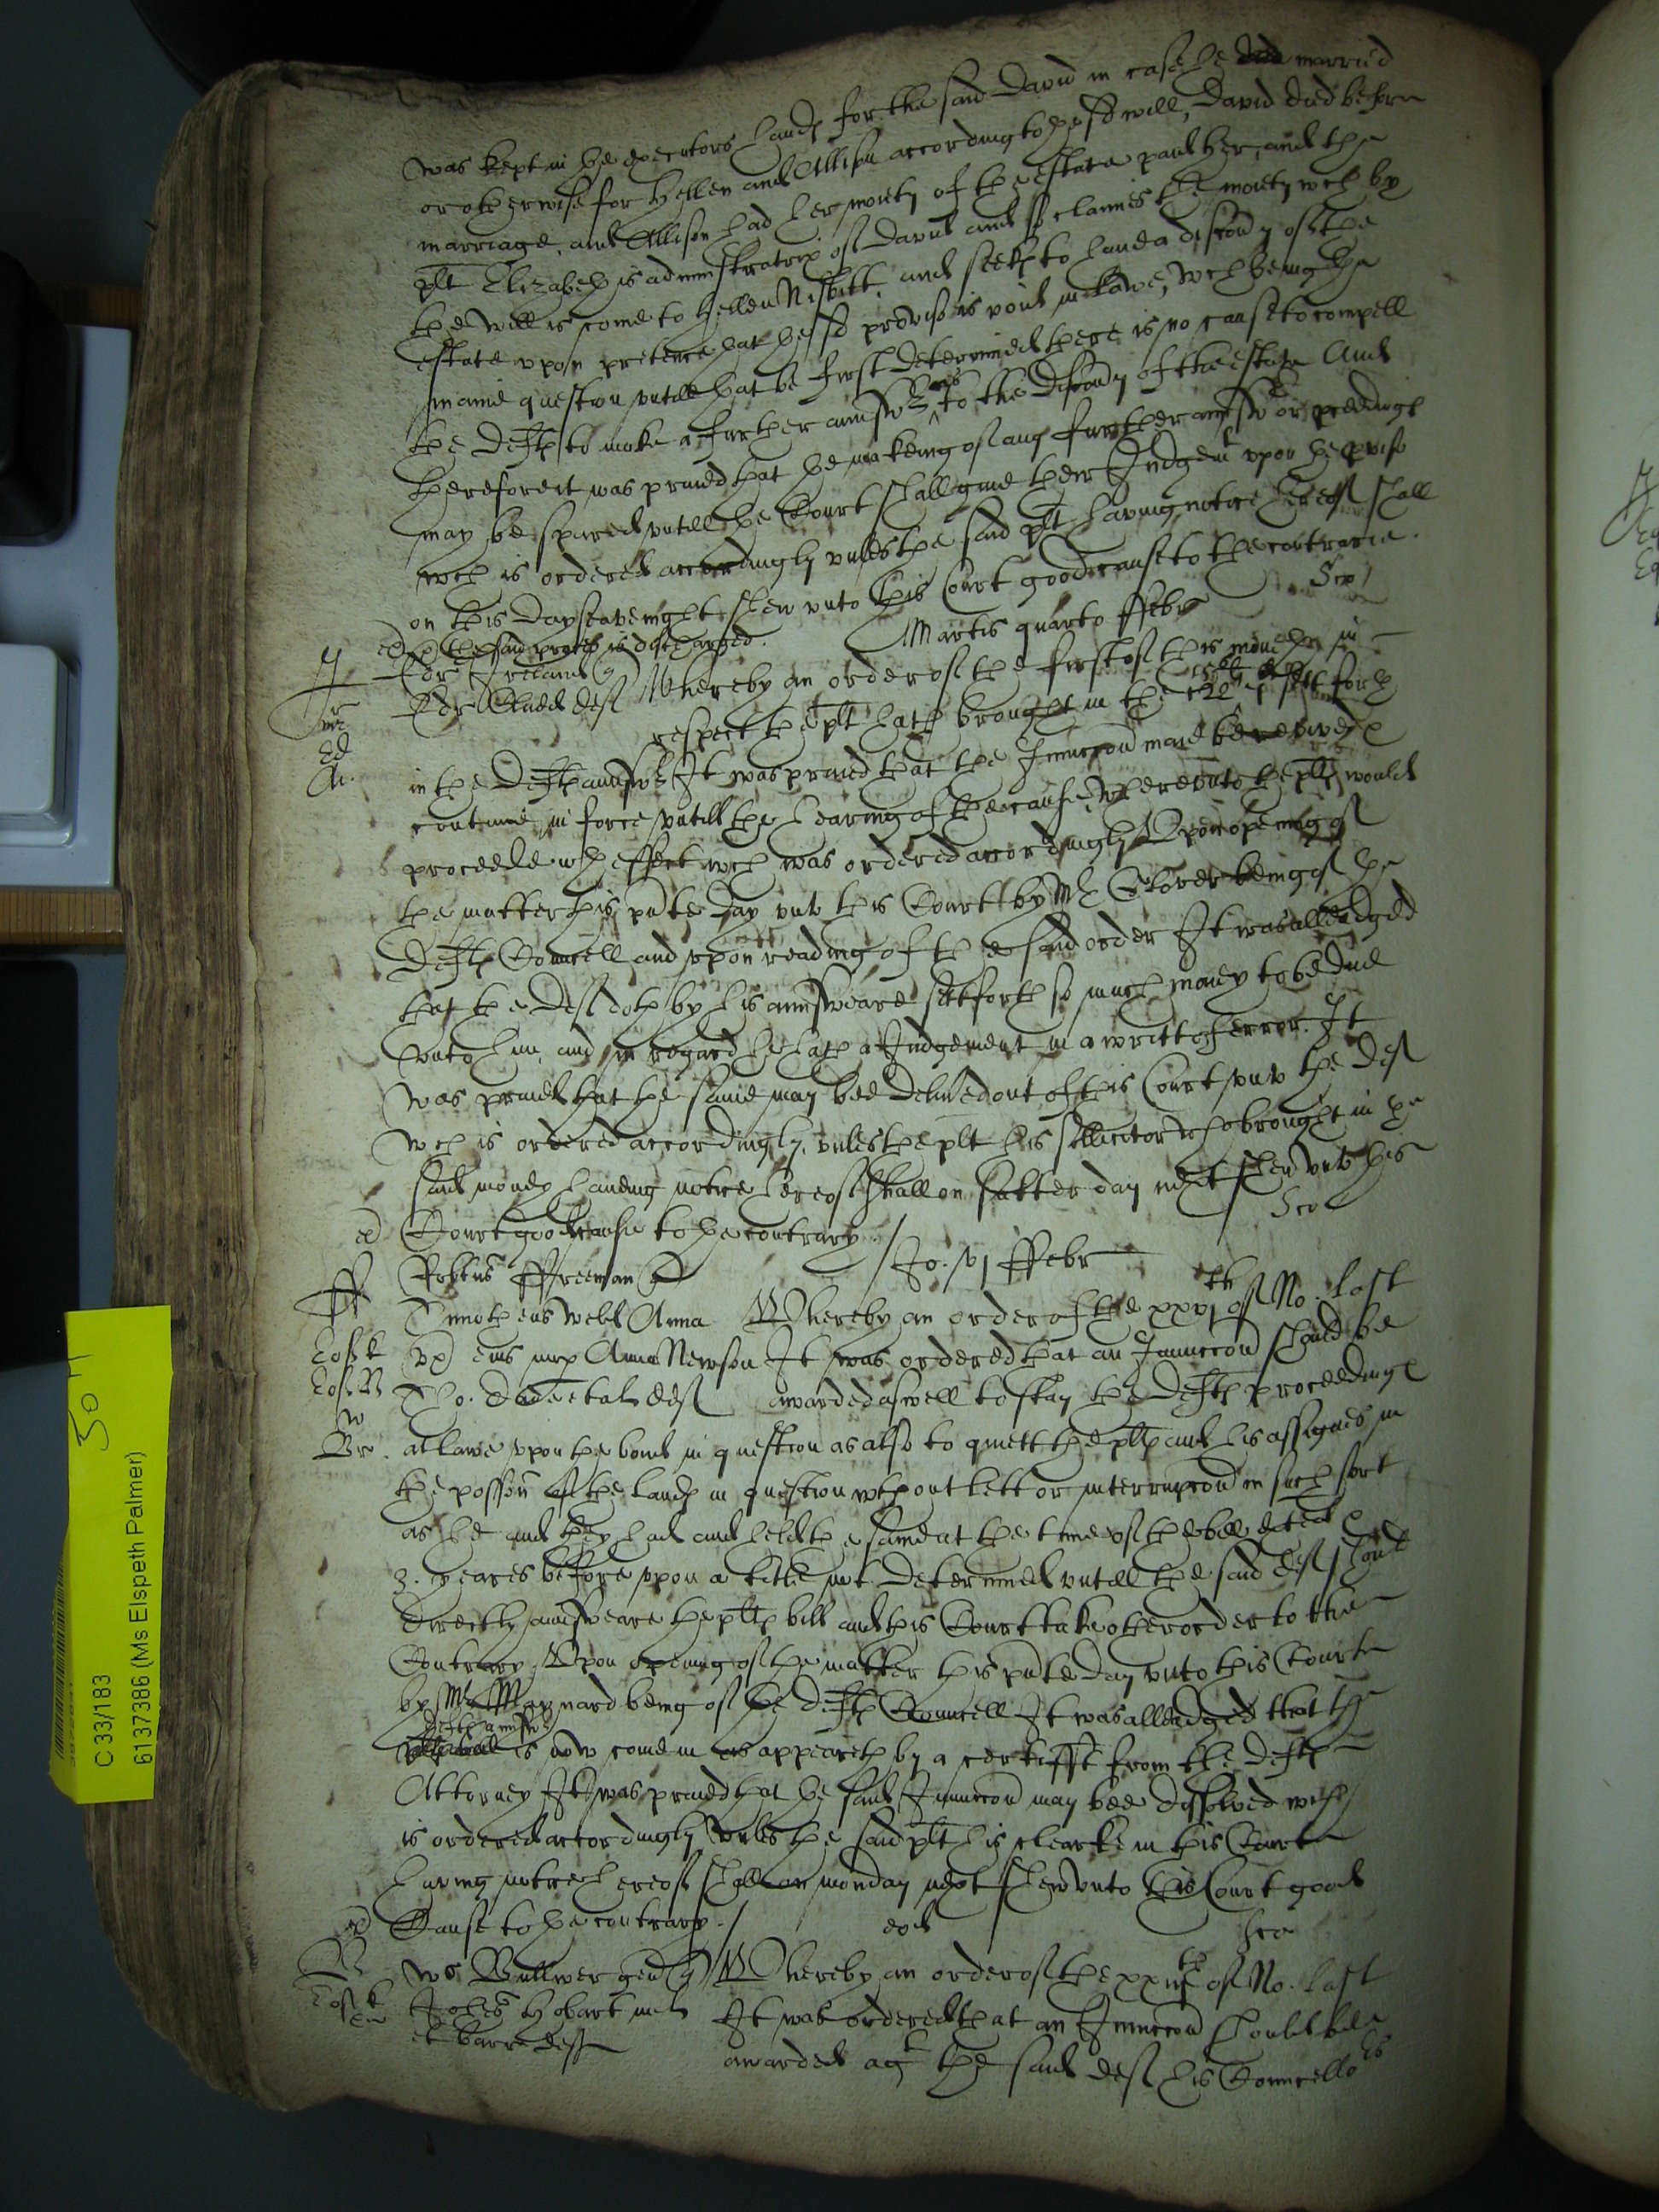 was kept in the executors hands for the said David in case he married
or otherwise for Hellen and Allison according to the sd will, David died before
marriage, and Allison had her moiety of the estate paid her, and the
plt Elizabeth is administratrix of David and so claimes the moiety wch by
the will is come to Hellen Nisbitt, and seeks to have a discouy of the
estate upon pretence that the sd proviso is void in lawe, wch being the
maine question untill that be first determined there is no cause to compell
the defts to make a further answr as to the discouy of the estate And
therefore it was praied that the makeing of any further answr or pceedings
may be spared untill the Court shall give their Judgemt upon the pviso
wch is ordered accordingly unles the said plt having notice hereof shall
on this day seavenight shew unto this Court good cause to the contrarie.
ex the said proces is discharged.
Martis quarto ffebr
Sco
Edr Ireland q
Edr def Whereby an order of the first of this moneth in
respect the plt hath brought in the 122li set forth
in the defts answr It was praied that the Iniuccon maie be revived &
continue in force untill the hearing of the cause, whereunto the plt would
proceede wth effect wch was ordered accordingly Upon opening of
the matter this pnte day unto this Court by Mr Glover being of the
Defts Councell and upon reading of the said order It was alleadged
that the def doth by his answeare set forth so much money to be due
unto him, and in regard he hath a Judgement in a writt of error. It
was praied that the same may bee delivred out of this Court unto the def
wch is ordered accordingly, unles the plt his sollicitor who brought in the
said money having notice hereof shall on Satterday next shew unto this
ex Court good cause to the contrary./
Sco
Jo. vj ffebr
ff
Robtus ffreeman q
Timotheus Webb Anna Whereby an order of the xxvjth of No. last
ux eius nup Anna Newson It was ordered that an Iniuccon should be
et al def awarded aswell to stay the Defts proceedings
at lawe upon the bond in question as also to quiett the plt and his assignes in
the possion of the lands in question wthout lett or interrupcon in such sort
as he and they had and held the same at the time of the bill &
3. yeares before upon a title not determined untill the said def should
directly answeare the plts bill and this Court take other order to the
Contrary, Upon opening of the matter this pnte day unto this Court
by Mr Maynard being of the defts Councell It was alleadged that the
defts answr
is now come in as appeareth by a certifft from the defts
Attorney It was praied that the said Iniuccon may bee dissolved wch
is ordered accordingly unles the said plt his clearke in this Court
having notice hereof shall on monday next shew unto this Court good
ex Cause to the contrary./
eod
Sco
B
Wo Bullwer gen q Whereby an order of the of No. last
Johes Hobart mil It was ordered that an Iniuccon should bee
et barr def awarded agt the said def his Councellors
C 33/183
6137386 (Ms Elspeth Palmer)